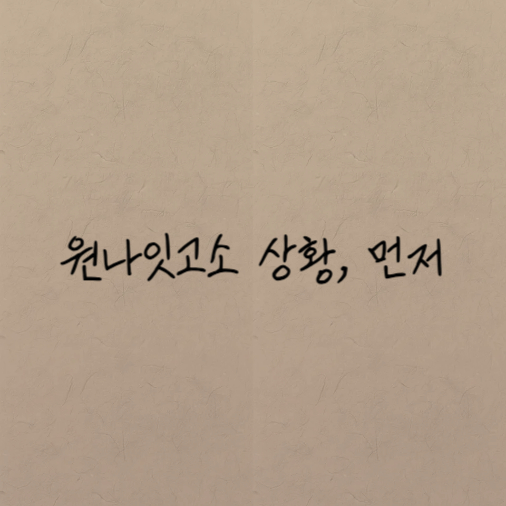 원나잇고소 상황, 먼저